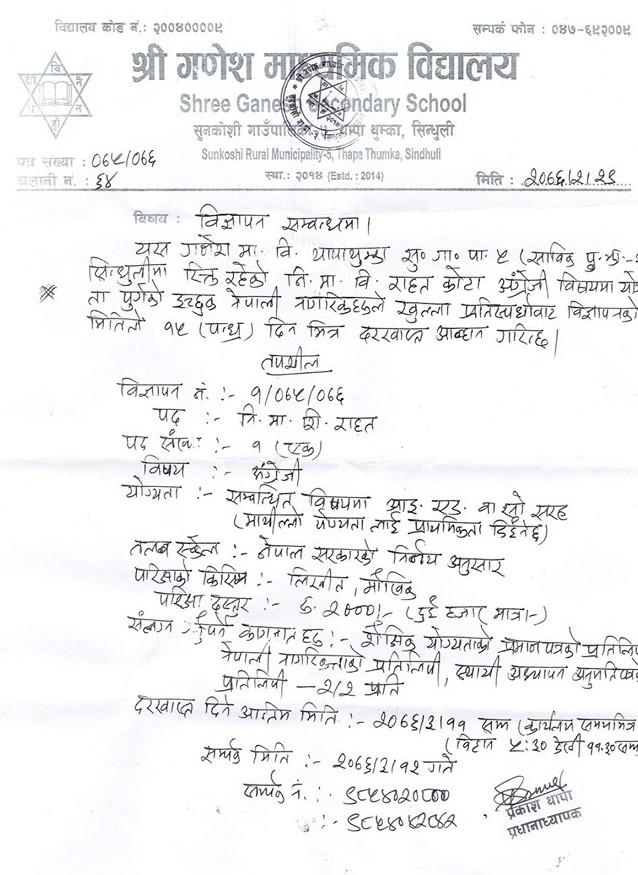 विद्यालय कोड नं.: २००४००००९
सम्पर्क फोन : ०४७-६९२००९
श्री गणेश माध्यमिक विद्यालय
Shree Ganesh Secondary School
सुनकोशी गाउँपालिका-५ थापा थुम्का, सिन्धुली
Sunkoshi Rural Municipality-5, Thapa Thumka, Sindhuli
पत्र संख्या : ०६५/०६६
स्था.: २०१४ (Estd. : 2014)
चलानी नं. : ६४
मिति :
विषय : विज्ञापन सम्बन्धमा।
यस गणेश मा. वि. थापाथुम्का सु० गा. पा. ५ (साविक
सिन्धुलीमा रिक्त रहेको नि. मा. वि. राहत कोटा अंग्रेजी विषयमा
ता पुगेको इच्छुक नेपाली नागरिकहरुले खुल्ला प्रतिस्पर्धाबाट विज्ञापनको
मितिले १५ (पन्ध्र) दिन भित्र दरखास्त आब्हान गरिन्छ।
तपशील
विज्ञापन नं. :- १/०६५/०६६
पद :- नि. मा. शि. राहत
पद संख्या :- १ (एक)
विषय :- अंग्रेजी
योग्यता :- सम्बन्धित विषयमा आइ. एड. वा सो सरह
(माथील्लो योग्यता लाई प्राथमिकता दिईनेछ)
तलब स्केल :- नेपाल सरकारको निर्णय अनुसार
परिक्षाको किसिम :- लिखीत, मौखिक
परिक्षा दस्तुर :- रु. २०००।- (दुई हजार मात्र।-)
संलग्न गर्नुपर्ने कागजात हरु :- शैक्षिक योग्यताको प्रमाणपत्रको प्रतिलिपि
नेपाली नागरिकताको प्रतिलिपी, स्थायी अध्यापन अनुमतिपत्रको
प्रतिलिपी — २/२ प्रति
दरखास्त दिने अन्तिम मिति :- २०६६/२/११ सम्म (कार्यालय समयभित्र
(विहान ५:३० देखी ११.३० सम्म
सम्पर्क मिति :- २०६६/२/१२ गते
सम्पर्क नं. :-
प्रकाश थापा
प्रधानाध्यापक